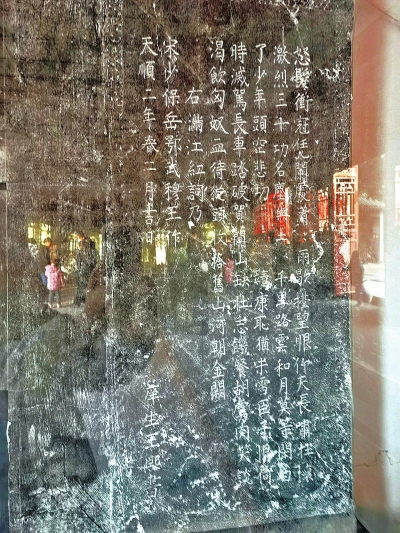 怒髮衝冠凭闌處瀟瀟雨歇擡望眼仰天長嘯壯懷
激烈三十功名塵與土八千里路雲和月莫等閑白
了少年頭空悲切 靖康恥猶未雪臣子恨何
時滅駕長車踏破賀蘭山缺壯志饑餐胡虜肉笑談
渴飲匈奴血待從頭收拾舊山河朝金闕
右滿江紅詞乃
宋少保岳鄂武穆王作
天順二年春二月吉日
庠生王熙書